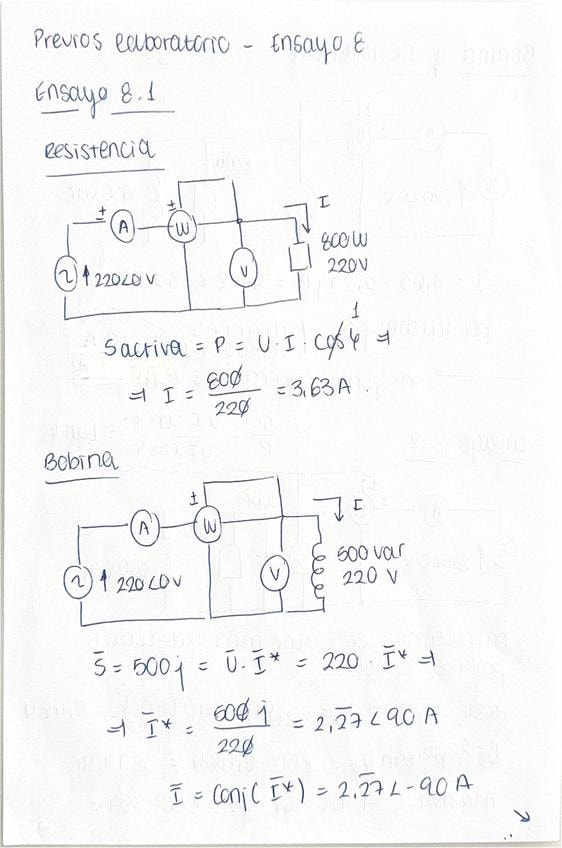 Previos laboratorio - Ensayo 8
Ensayo 8.1
Resistencia
± A ± W I
~ ↑ 220∠0 V V 800W
220V
1
Sactiva = P = U · I · cos φ ⇒
⇒ I = 800/220 = 3,63 A.
Bobina
A ± W I
~ ↑ 220∠0 V V 500 var
220 V
S̄ = 500j = Ū · Ī* = 220 Ī* ⇒
⇒ Ī* = 500j/220 = 2,2̄7̄∠90 A
Ī = conj(Ī*) = 2,2̄7̄∠-90 A